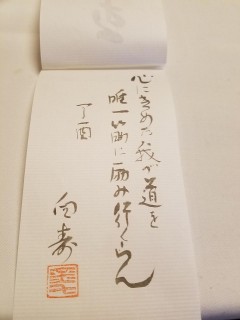 心にきめた我が道を
唯一筋に励み行くらん
丁酉
向寿